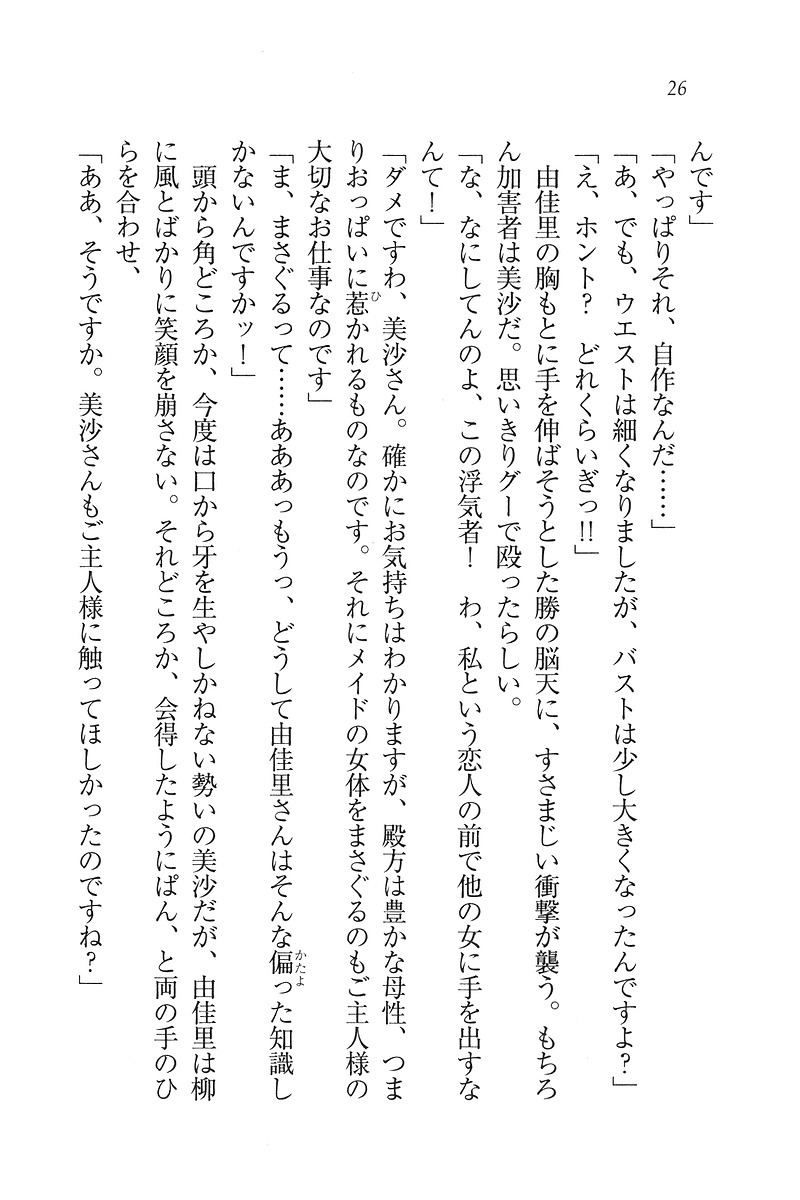 26
んです」
「やっぱりそれ、自作なんだ……」
「あ、でも、ウエストは細くなりましたが、バストは少し大きくなったんですよ？」
「え、ホント？　どれくらいぎっ!!」
　由佳里の胸もとに手を伸ばそうとした勝の脳天に、すさまじい衝撃が襲う。もちろ
ん加害者は美沙だ。思いきりグーで殴ったらしい。
「な、なにしてんのよ、この浮気者！　わ、私という恋人の前で他の女に手を出すな
んて！」
「ダメですわ、美沙さん。確かにお気持ちはわかりますが、殿方は豊かな母性、つま
りおっぱいに惹かれるものなのです。それにメイドの女体をまさぐるのもご主人様の
大切なお仕事なのです」
「ま、まさぐるって……あああっもうっ、どうして由佳里さんはそんな偏った知識し
かないんですかッ！」
　頭から角どころか、今度は口から牙を生やしかねない勢いの美沙だが、由佳里は柳
に風とばかりに笑顔を崩さない。それどころか、会得したようにぱん、と両の手のひ
らを合わせ、
「ああ、そうですか。美沙さんもご主人様に触ってほしかったのですね？」